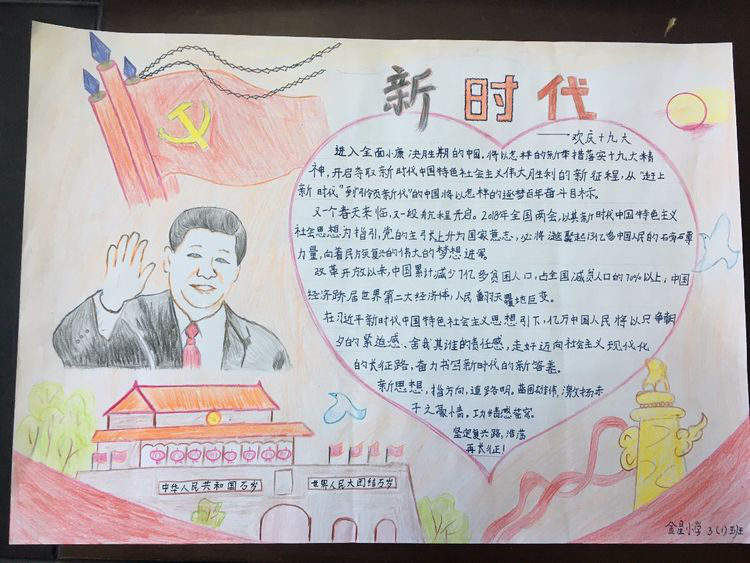 新时代
——欢庆十九大
进入全面小康决胜期的中国，将以怎样的新举措落实十九大精
神，开启夺取新时代中国特色社会主义伟大胜利的新征程，从“赶上
新时代”到“引领新代”的中国将以怎样的逐梦百年奋斗目标。
又一个春天来临，又一段航程开启。2018年全国两会，以其新时代中国特色主义
社会思想为指引，党的主张上升为国家意志，必将凝聚起13亿多中国人民的磅礴
力量，向着民族复兴的伟大的梦想进军
改革开放以来，中国累计减少7亿多贫困人口，占全国减贫人口的70%以上；中国
经济跻居世界第二大经济体，人民翻天覆地巨变。
在习近平新时代中国特色社会主义思想引下，亿万中国人民将以只争朝
夕的紧迫感、舍我其谁的责任感，走好迈向社会主义现代化
的长征路，奋力书写新时代的新答卷。
新思想，指方向，道路明。蓝图雄伟，激扬赤
子之豪情。功
坚定复兴路，浩荡
再长征！
中华人民共和国万岁
世界人民大团结万岁
金星小学 3(1)班